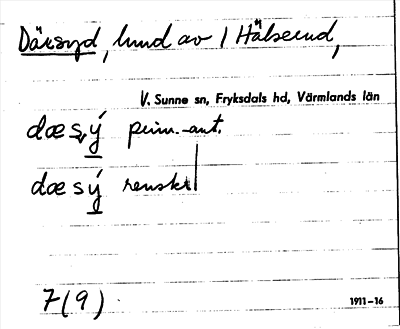 Därsyd, lund av / Hälserud,
V. Sunne sn, Fryksdals hd, Värmlands län
dæsý prim.-ant.
dæsý renskr
7(9).
1911–16